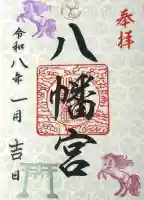 奉拝
八幡宮
令和八年一月吉日